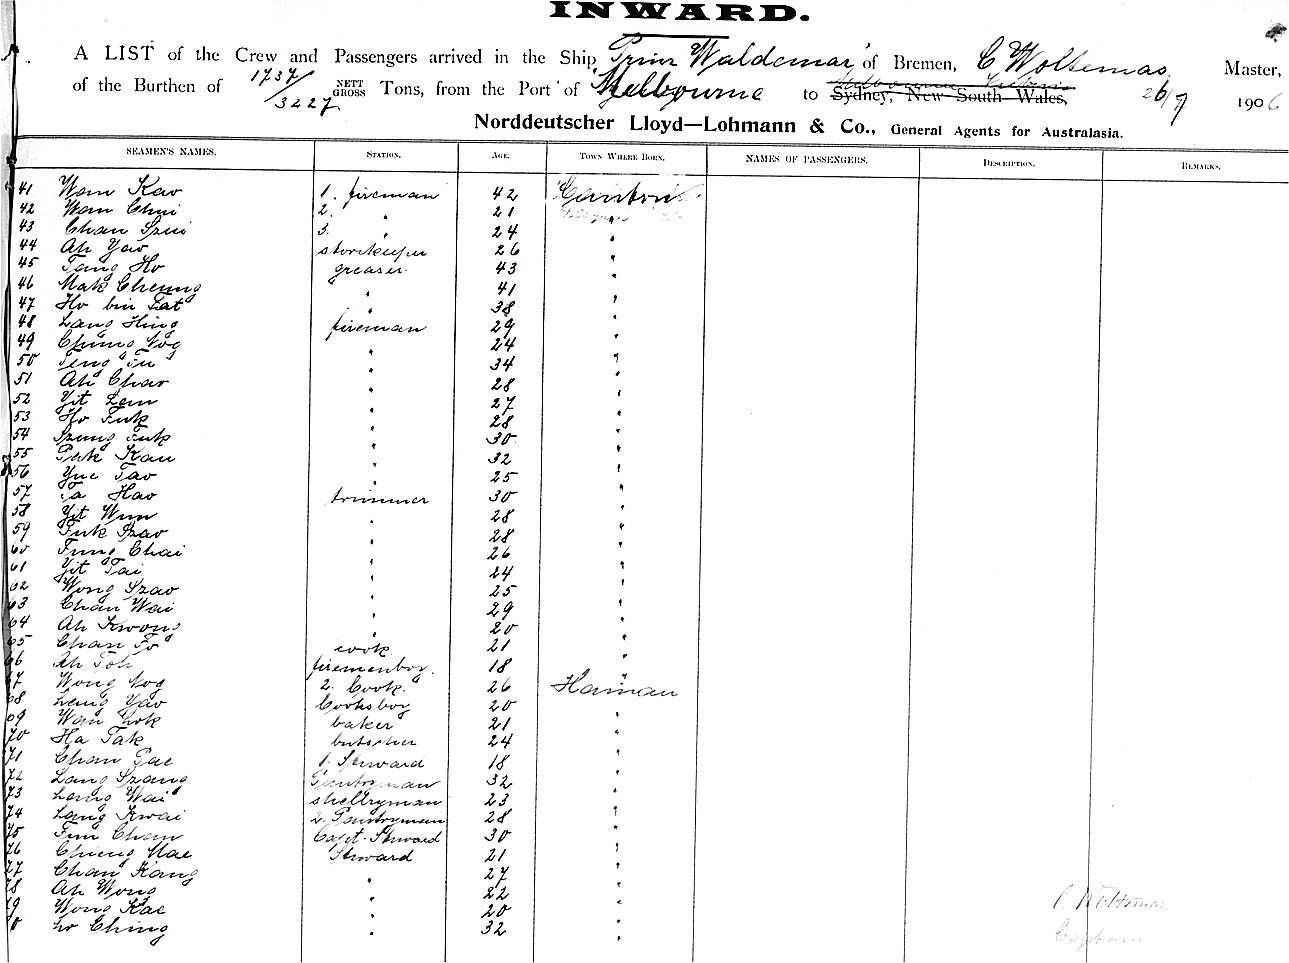 INWARD.
A LIST of the Crew and Passengers arrived in the Ship Prinz Waldemar of Bremen, C Woltemas Master,
of the Burthen of 1737/3227 NETT GROSS Tons, from the Port of Melbourne to Sydney, New South Wales, 26/7 1906
Norddeutscher Lloyd—Lohmann & Co., General Agents for Australasia.
SEAMEN'S NAMES. STATION. AGE. TOWN WHERE BORN. NAMES OF PASSENGERS. DESCRIPTION. REMARKS.
41 Wam Kao 1. fireman 42 Canton
42 Wan Chui 2. " 21 "
43 Chan Szui 3. " 24 "
44 Ah Yao storekeeper 26 "
45 Tang Ho greaser 43 "
46 Mak Cheung " 41 "
47 Ho bin Fat " 38 "
48 Lang Hing fireman 29 "
49 Chung Nog " 24 "
50 Teng Tu " 34 "
51 Ah Chao " 28 "
52 Yit Lem " 27 "
53 Ho Fuk " 28 "
54 Szung Fuk " 30 "
55 Fuk Kau " 32 "
56 Yue Tao " 25 "
57 Ta Hao trimmer 30 "
58 Yit Wun " 28 "
59 Fuk Szao " 28 "
60 Fung Chai " 26 "
61 Yit Tai " 24 "
62 Wong Szao " 25 "
63 Chan Wai " 29 "
64 Ah Kwong " 20 "
65 Chan Fo cook 21 "
66 Ah Toh firemenboy. 18 "
67 Wong Nog 2. Cook. 26 Hainan
68 Lang Yao Cooksboy 20 "
69 Wan Lok baker 21 "
70 Ha Tak butcher 24 "
71 Chan Gae 1. Steward 18 "
72 Lang Szang Pantryman 32 "
73 Lang Wai shelleryman 23 "
74 Lang Kwai 2. Pantryman 28 "
75 Fun Chan Capt. Steward 30 "
76 Chueng Mae Steward 21 "
77 Chan Kang " 27 "
78 Ah Wong " 22 "
79 Wong Kae " 20 " C. Woltemas
80 Lo Ching " 32 " Captain